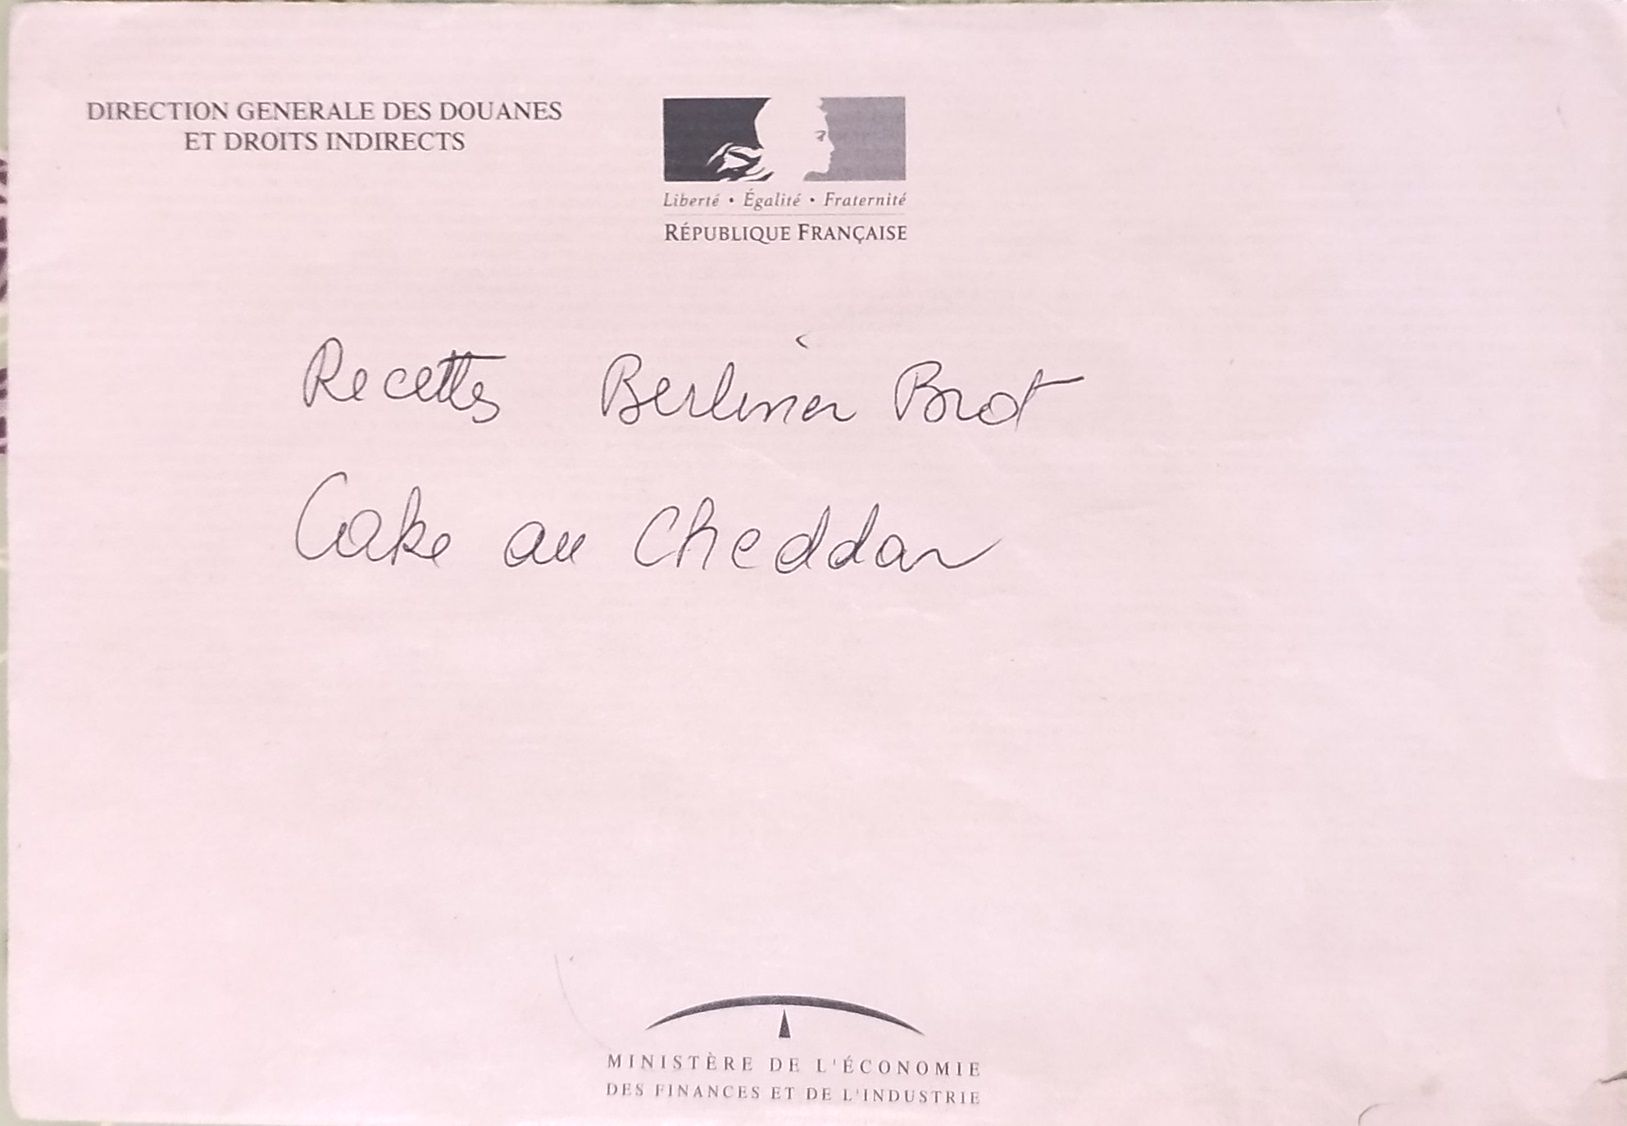 DIRECTION GENERALE DES DOUANES
ET DROITS INDIRECTS
Liberté • Égalité • Fraternité
RÉPUBLIQUE FRANÇAISE
Recettes Berliner Brot
Cake au Cheddar
MINISTÈRE DE L'ÉCONOMIE
DES FINANCES ET DE L'INDUSTRIE